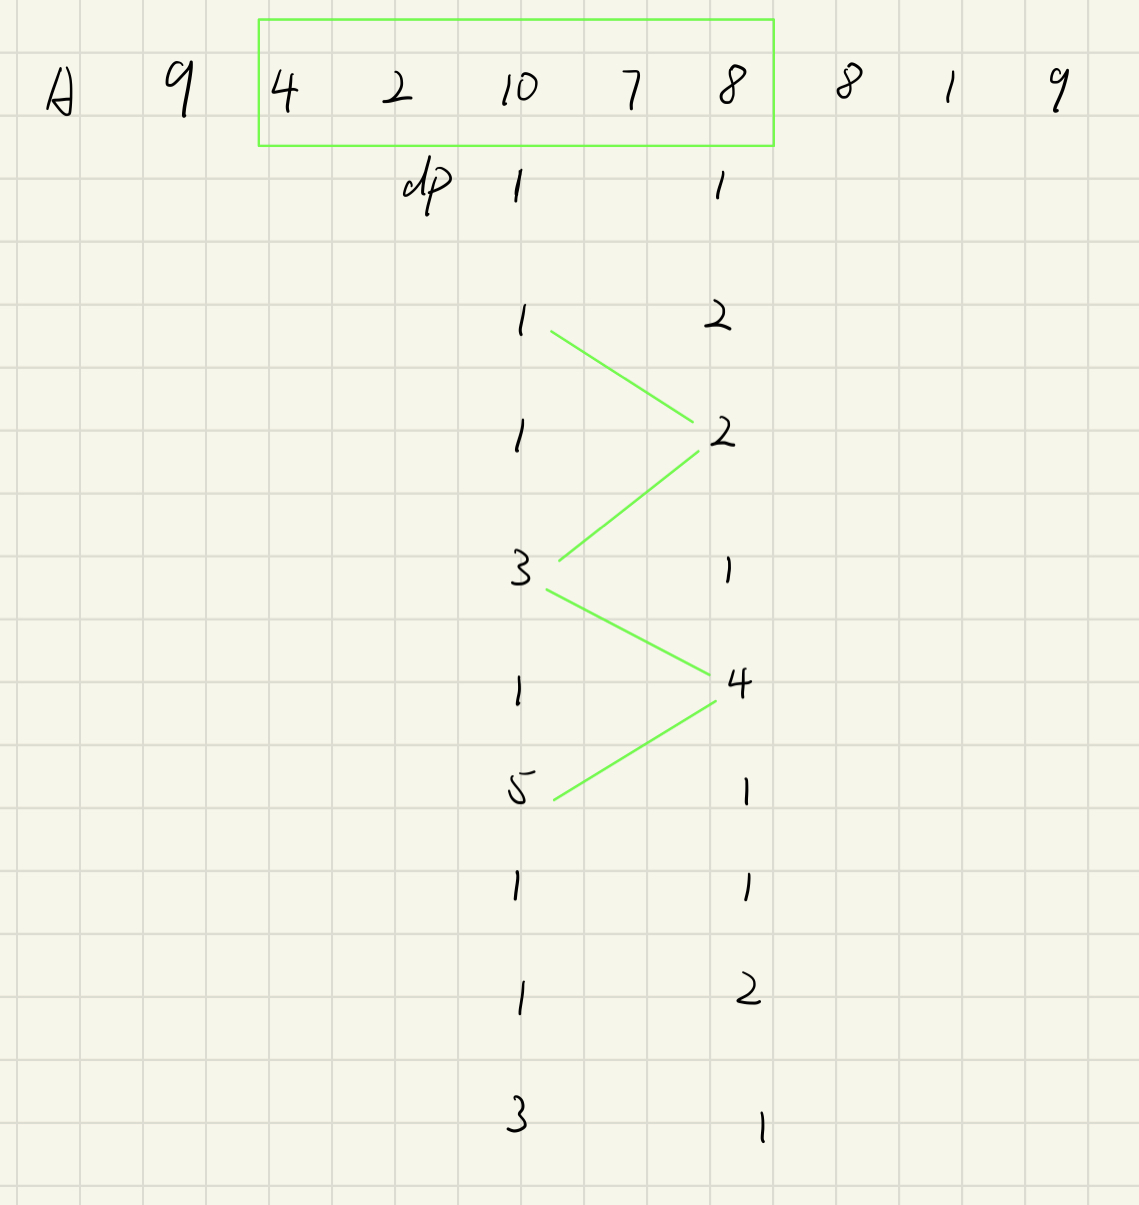 A 9 4 2 10 7 8 8 1 9
dp 1 1
1 2
1 2
3 1
1 4
5 1
1 1
1 2
3 1